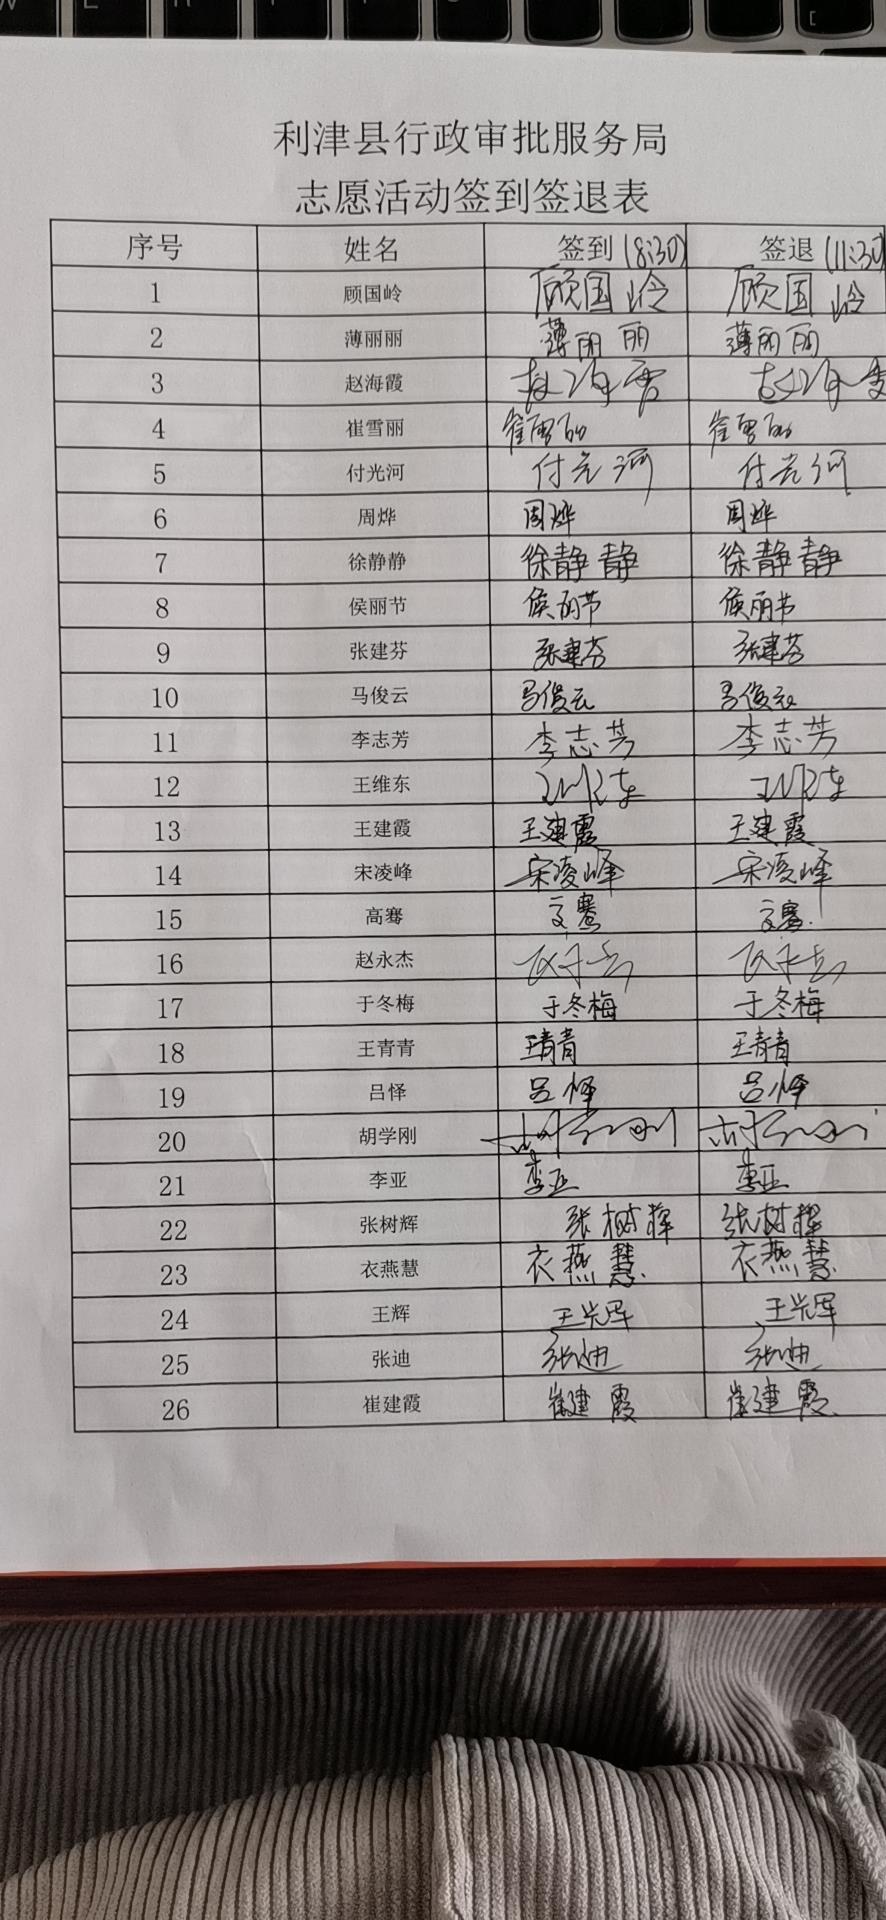 利津县行政审批服务局
志愿活动签到签退表
序号 姓名 签到 (8:30) 签退 (11:30)
1 顾国岭 顾国岭 顾国岭
2 薄丽丽 薄丽丽 薄丽丽
3 赵海霞 赵海霞 赵海霞
4 崔雪丽 崔雪丽 崔雪丽
5 付光河 付光河 付光河
6 周烨 周烨 周烨
7 徐静静 徐静静 徐静静
8 侯丽节 侯丽节 侯丽节
9 张建芬 张建芬 张建芬
10 马俊云 马俊云 马俊云
11 李志芳 李志芳 李志芳
12 王维东 王维东 王维东
13 王建霞 王建霞 王建霞
14 宋凌峰 宋凌峰 宋凌峰
15 高骞
16 赵永杰 赵永杰 赵永杰
17 于冬梅 于冬梅 于冬梅
18 王青青 王青青 王青青
19 吕怿 吕怿 吕怿
20 胡学刚 胡学刚 胡学刚
21 李亚 李亚 李亚
22 张树辉 张树辉 张树辉
23 衣燕慧 衣燕慧 衣燕慧
24 王辉 王辉 王辉
25 张迪 张迪 张迪
26 崔建霞 崔建霞 崔建霞